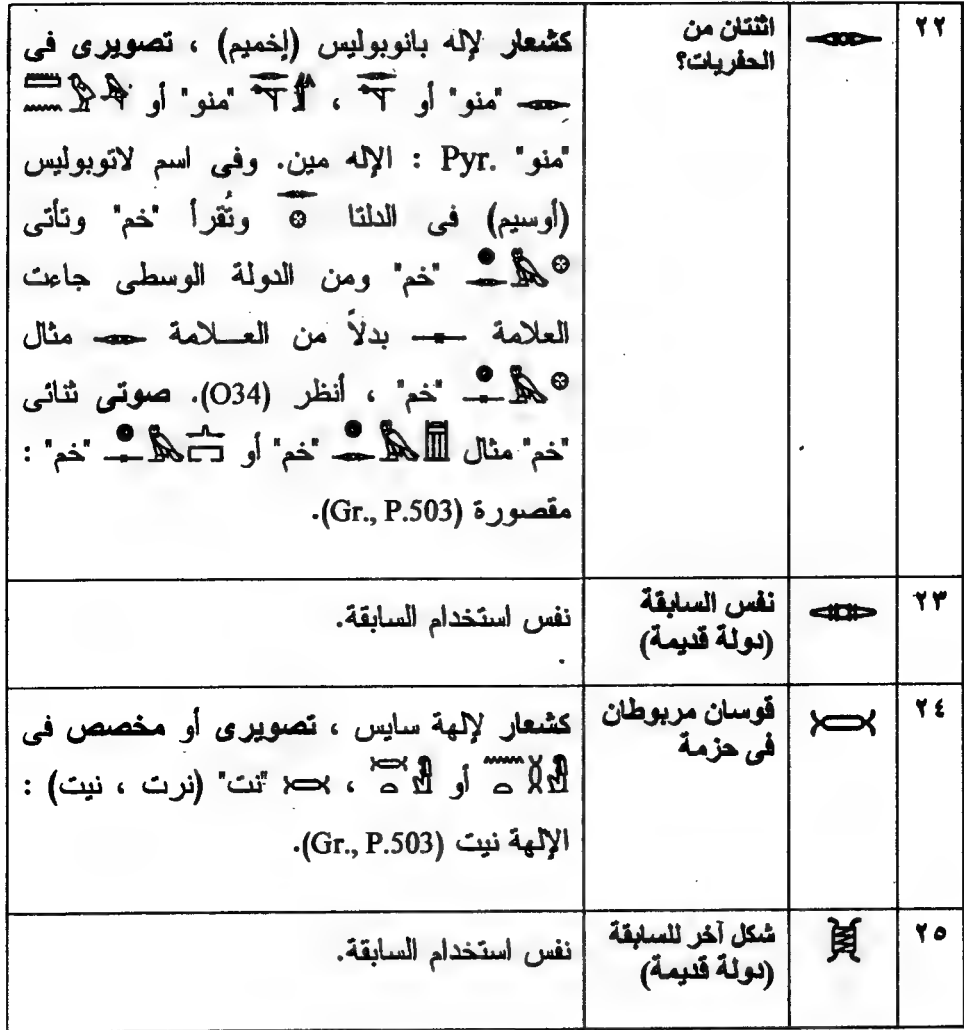 ٢٢
𓋉
اثنتان من
الحفريات؟
كشعار لإله بانوبوليس (إخميم) ، تصويرى فى
𓋉 "منو" أو ، "منو" أو
"منو" Pyr. : الإله مين. وفى اسم لاتوبوليس
(أوسيم) فى الدلتا وتُقرأ "خم" وتأتى
"خم" ومن الدولة الوسطى جاءت
العلامة 𓊃 بدلاً من العـلامة 𓋉 مثال
"خم" ، أنظر (O34). صوتى ثنائى
"خم" مثال "خم" أو "خم" :
مقصورة (Gr., P.503).
٢٣
𓋊
نفس السابقة
(دولة قديمة)
نفس استخدام السابقة.
٢٤
𓋋
قوسان مربوطان
فى حزمة
كشعار لإلهة سايس ، تصويرى أو مخصص فى
أو ، 𓋋 "نت" (نرت ، نيت) :
الإلهة نيت (Gr., P.503).
٢٥
𓋌
شكل آخر للسابقة
(دولة قديمة)
نفس استخدام السابقة.